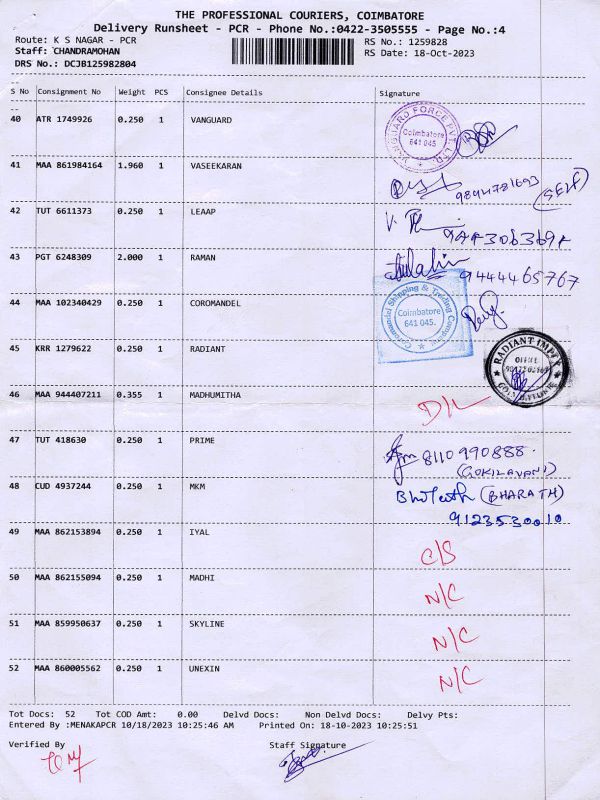 THE PROFESSIONAL COURIERS, COIMBATORE
Delivery Runsheet - PCR - Phone No.:0422-3505555 - Page No.:4
Route: K S NAGAR - PCR RS No.: 1259828
Staff: CHANDRAMOHAN RS Date: 18-Oct-2023
DRS No.: DCJB125982804
S No Consignment No Weight PCS Consignee Details Signature
40 ATR 1749926 0.250 1 VANGUARD
VANGUARD FORCE PVT. LTD.
Coimbatore
641 045
41 MAA 861984164 1.960 1 VASEEKARAN
(SELF)
42 TUT 6611373 0.250 1 LEAAP
43 PGT 6248309 2.000 1 RAMAN
9444465767
44 MAA 102340429 0.250 1 COROMANDEL
Coromandel Shipping & Trading Company
Coimbatore
641 045.
45 KRR 1279622 0.250 1 RADIANT
RADIANT IMPEX
OFFICE
46 MAA 944407211 0.355 1 MADHUMITHA
D/L
47 TUT 418630 0.250 1 PRIME
8110990888.
(GOKILAVANI)
48 CUD 4937244 0.250 1 MKM
(BHARATH)
9123530010
49 MAA 862153894 0.250 1 IYAL
C/S
50 MAA 862155094 0.250 1 MADHI
N/C
51 MAA 859950637 0.250 1 SKYLINE
N/C
52 MAA 860005562 0.250 1 UNEXIN
N/C
Tot Docs: 52 Tot COD Amt: 0.00 Delvd Docs: Non Delvd Docs: Delvy Pts:
Entered By :MENAKAPCR 10/18/2023 10:25:46 AM Printed On: 18-10-2023 10:25:51
Verified By Staff Signature